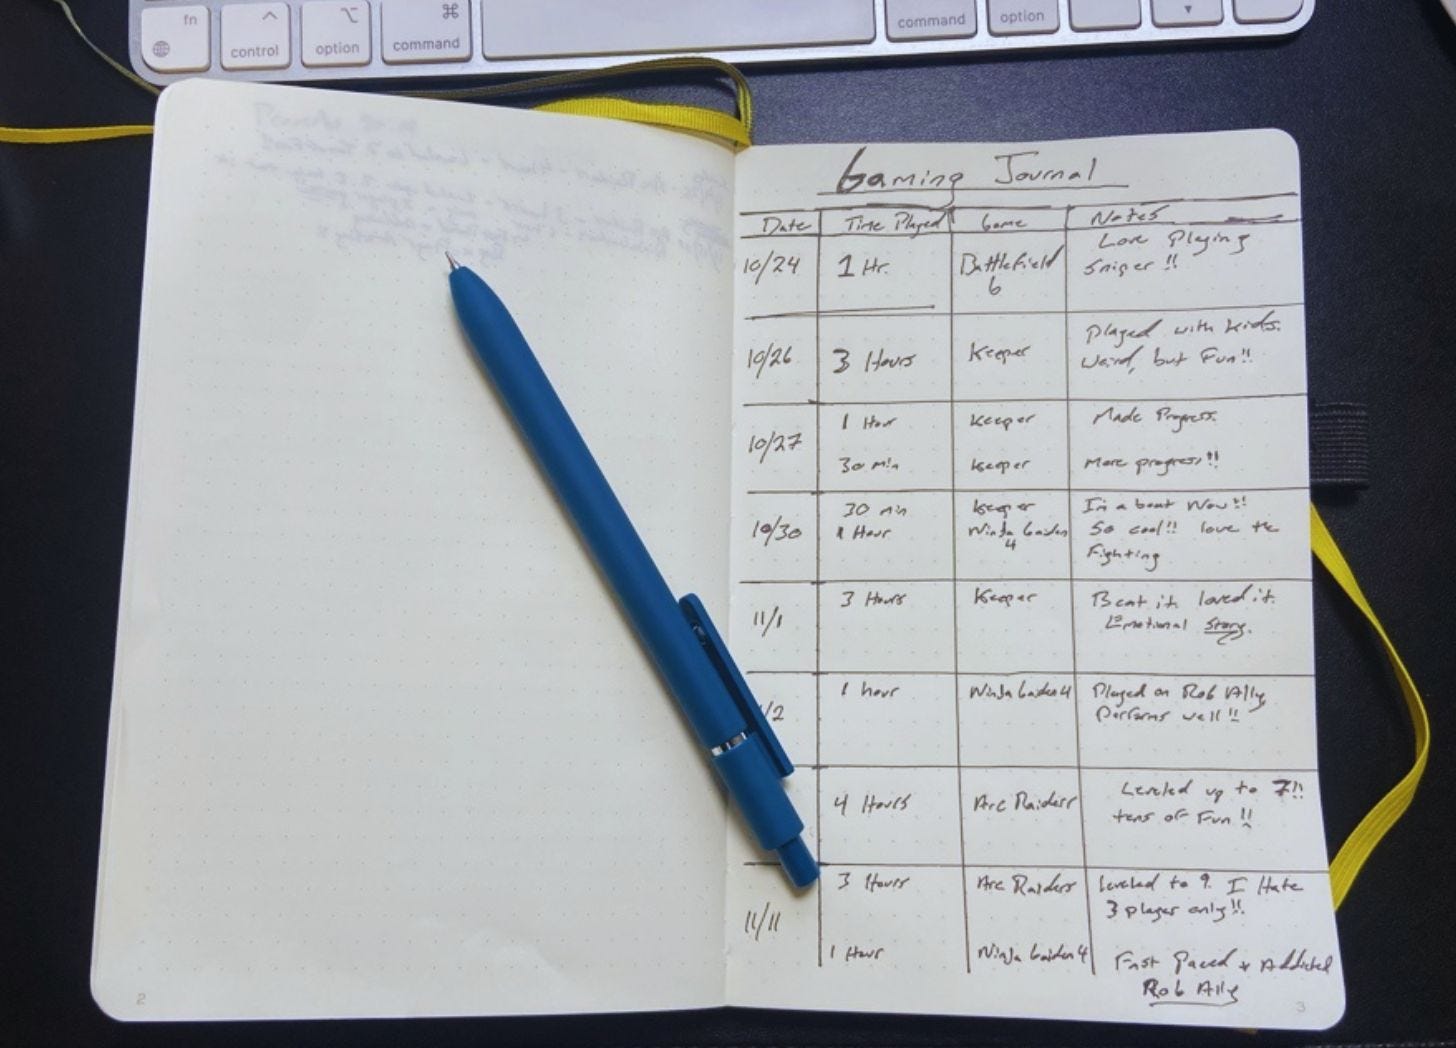 fn
control
option
⌘
command
command
option
Gaming Journal
Date Time Played Game Notes
10/24 1 Hr. Battlefield 6 Love Playing
Sniper!!
10/26 3 Hours Keeper Played with kids.
Weird, but Fun!!
10/27 1 Hour Keeper Made Progress.
30 min Keeper More progress!!
10/30 30 min Keeper Im a boat Now!!
1 Hour Ninja Gaiden 4 So cool!! love the
Fighting
11/1 3 Hours Keeper Beat it. loved it.
Emotional Story.
/2 1 hour Ninja Gaiden 4 Played on Rob Ally
Performs well!!
4 Hours Arc Raiders Leveled up to 7!!
tons of Fun!!
11/11 3 Hours Arc Raiders leveled to 9. I Hate
3 player only!!
1 Hour Ninja Gaiden 4 Fast Paced + Addicted
Rob Ally
2
3